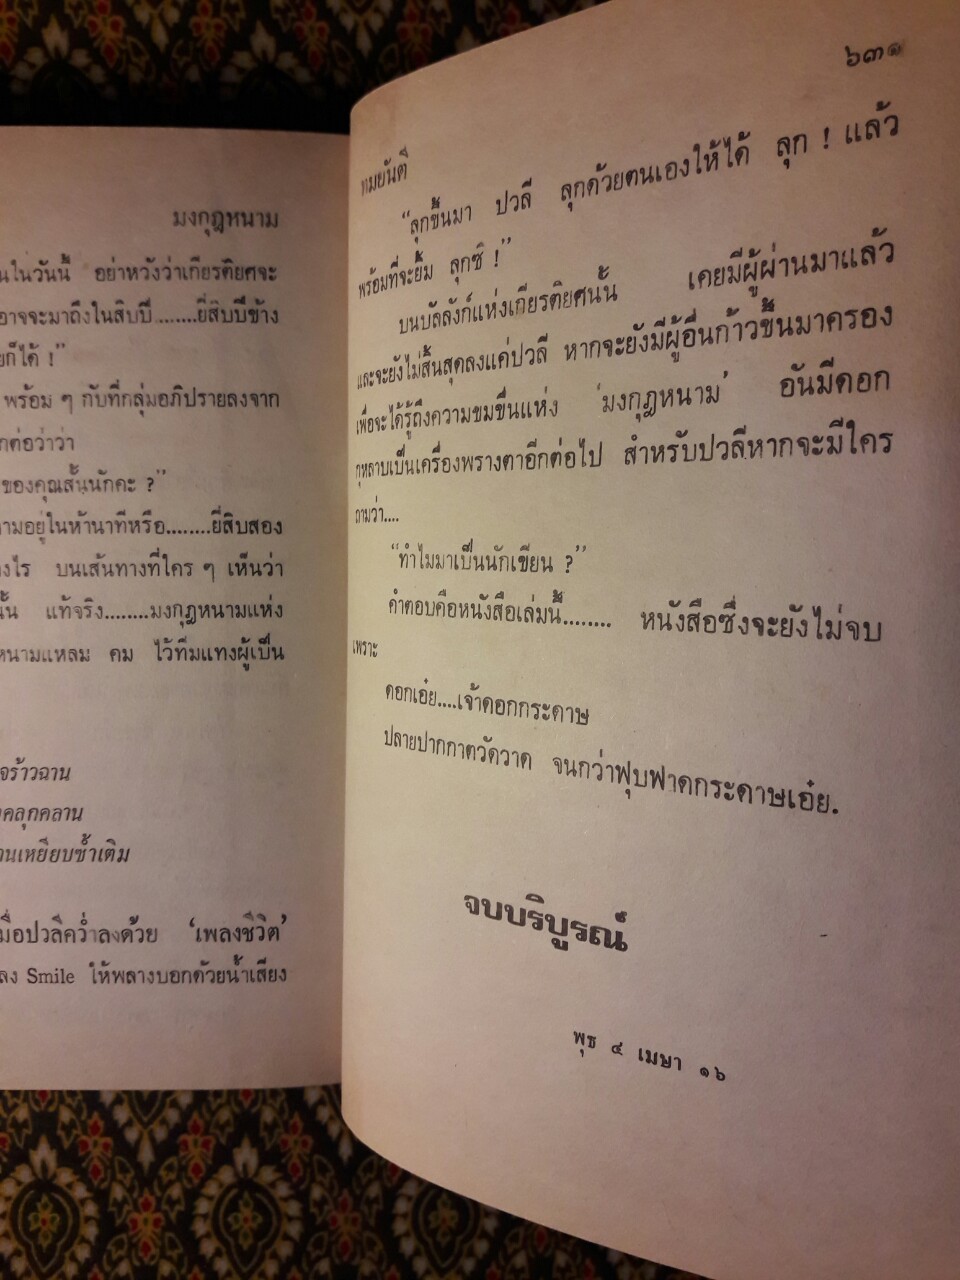 มงกุฎหนาม
นในวันนี้ อย่าหวังว่าเกียรติยศจะ
อาจจะมาถึงในสิบปี ........ยี่สิบปีข้าง
ยก็ได้ !”
พร้อม ๆ กับที่กลุ่มอภิปรายลงจาก
กต่อว่าว่า
ของคุณสั้นนักคะ ?”
ามอยู่ในห้านาทีหรือ........ยี่สิบสอง
งไร บนเส้นทางที่ใคร ๆ เห็นว่า
นั้น แท้จริง........มงกุฎหนามแห่ง
หนามแหลม คม ไว้ทิ่มแทงผู้เป็น
จร้าวฉาน
คลุกคลาน
านเหยียบซ้ำเติม
มื่อปวลีคว่ำลงด้วย ‘เพลงชีวิต’
ลง Smile ให้พลางบอกด้วยน้ำเสียง
๖๓๑
ทมยันตี
“ลุกขึ้นมา ปวลี ลุกด้วยตนเองให้ได้ ลุก ! แล้ว
พร้อมที่จะยิ้ม ลุกซิ !”
บนบัลลังก์แห่งเกียรติยศนั้น เคยมีผู้ผ่านมาแล้ว
และจะยังไม่สิ้นสุดลงแค่ปวลี หากจะยังมีผู้อื่นก้าวขึ้นมาครอง
เพื่อจะได้รู้ถึงความขมขื่นแห่ง ‘มงกุฎหนาม’ อันมีดอก
กุหลาบเป็นเครื่องพรางตาอีกต่อไป สำหรับปวลีหากจะมีใคร
ถามว่า....
“ทำไมมาเป็นนักเขียน ?”
คำตอบคือหนังสือเล่มนี้........ หนังสือซึ่งจะยังไม่จบ
เพราะ
ดอกเอ๋ย....เจ้าดอกกระดาษ
ปลายปากกาตวัดวาด จนกว่าฟุบฟาดกระดาษเอ๋ย.
จบบริบูรณ์
พุธ ๔ เมษา ๑๖